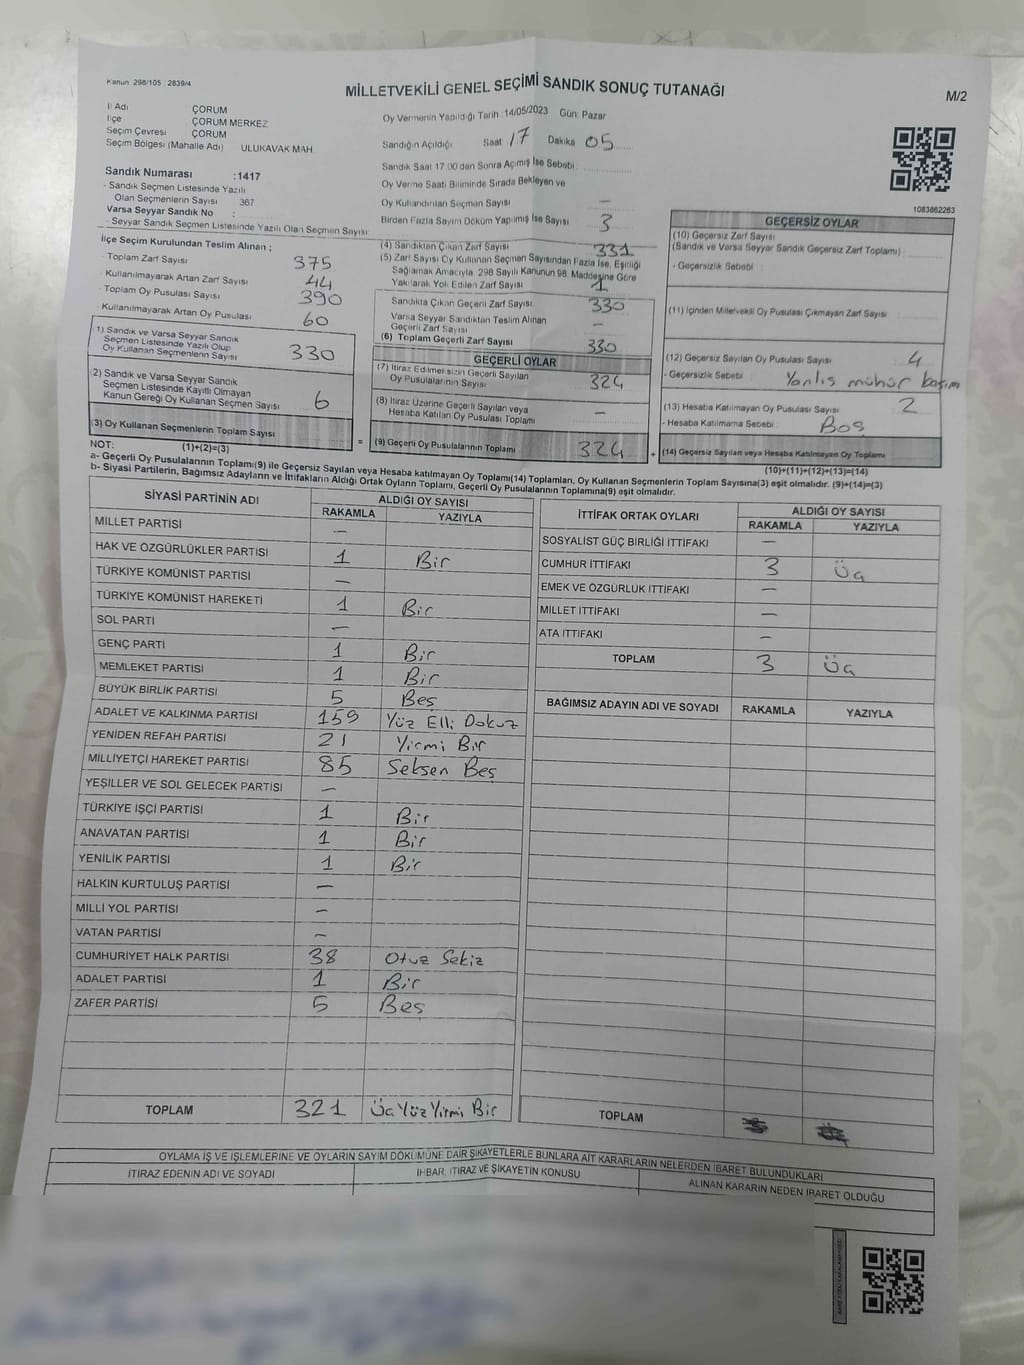 Kanun 298/105 2839/4
MİLLETVEKİLİ GENEL SEÇİMİ SANDIK SONUÇ TUTANAĞI
M/2
İl Adı ÇORUM
İlçe ÇORUM MERKEZ
Seçim Çevresi ÇORUM
Seçim Bölgesi (Mahalle Adı) ULUKAVAK MAH.
Sandık Numarası :1417
- Sandık Seçmen Listesinde Yazılı
Olan Seçmenlerin Sayısı 367
Varsa Seyyar Sandık No :
- Seyyar Sandık Seçmen Listesinde Yazılı Olan Seçmen Sayısı:
Oy Vermenin Yapıldığı Tarih :14/05/2023 Gün: Pazar
Sandığın Açıldığı Saat 17 Dakika 05
Sandık Saat 17:00'den Sonra Açılmış İse Sebebi:
Oy Verme Saati Bitiminde Sırada Bekleyen ve
Oy Kullandırılan Seçmen Sayısı –
Birden Fazla Sayım Döküm Yapılmış İse Sayısı 3
1083862263
İlçe Seçim Kurulundan Teslim Alınan ;
- Toplam Zarf Sayısı 375
- Kullanılmayarak Artan Zarf Sayısı 44
- Toplam Oy Pusulası Sayısı 390
- Kullanılmayarak Artan Oy Pusulası 60
1) Sandık ve Varsa Seyyar Sandık
Seçmen Listesinde Yazılı Olup
Oy Kullanan Seçmenlerin Sayısı 330
2) Sandık ve Varsa Seyyar Sandık
Seçmen Listesinde Kayıtlı Olmayan
Kanun Gereği Oy Kullanan Seçmen Sayısı 6
(3) Oy Kullanan Seçmenlerin Toplam Sayısı
(1)+(2)=(3)
(4) Sandıktan Çıkan Zarf Sayısı 331
(5) Zarf Sayısı Oy Kullanan Seçmen Sayısından Fazla İse, Eşitliği
Sağlamak Amacıyla 298 Sayılı Kanunun 98. Maddesine Göre
Yakılarak Yok Edilen Zarf Sayısı 1
Sandıkta Çıkan Geçerli Zarf Sayısı 330
Varsa Seyyar Sandıktan Teslim Alınan
Geçerli Zarf Sayısı –
(6) Toplam Geçerli Zarf Sayısı 330
GEÇERLİ OYLAR
(7) İtiraz Edilmeksizin Geçerli Sayılan
Oy Pusulalarının Sayısı 324
(8) İtiraz Üzerine Geçerli Sayılan veya
Hesaba Katılan Oy Pusulası Toplamı –
= (9) Geçerli Oy Pusulalarının Toplamı 324 +
GEÇERSİZ OYLAR
(10) Geçersiz Zarf Sayısı
(Sandık ve Varsa Seyyar Sandık Geçersiz Zarf Toplamı) :
- Geçersizlik Sebebi :
(11) İçinden Milletvekili Oy Pusulası Çıkmayan Zarf Sayısı :
(12) Geçersiz Sayılan Oy Pusulası Sayısı : 4
- Geçersizlik Sebebi : Yanlış mühür basım
(13) Hesaba Katılmayan Oy Pusulası Sayısı 2
- Hesaba Katılmama Sebebi : Boş
(14) Geçersiz Sayılan veya Hesaba Katılmayan Oy Pusulası Toplamı
(10)+(11)+(12)+(13)=(14)
NOT:
a- Geçerli Oy Pusulalarının Toplamı(9) ile Geçersiz Sayılan veya Hesaba katılmayan Oy Toplamı(14) Toplamları, Oy Kullanan Seçmenlerin Toplam Sayısına(3) eşit olmalıdır. (9)+(14)=(3)
b- Siyasi Partilerin, Bağımsız Adayların ve İttifakların Aldığı Ortak Oyların Toplamı, Geçerli Oy Pusulalarının Toplamına(9) eşit olmalıdır.
SİYASİ PARTİNİN ADI ALDIĞI OY SAYISI
RAKAMLA YAZIYLA
MİLLET PARTİSİ –
HAK VE ÖZGÜRLÜKLER PARTİSİ 1 Bir
TÜRKİYE KOMÜNİST PARTİSİ –
TÜRKİYE KOMÜNİST HAREKETİ 1 Bir
SOL PARTİ –
GENÇ PARTİ 1 Bir
MEMLEKET PARTİSİ 1 Bir
BÜYÜK BİRLİK PARTİSİ 5 Beş
ADALET VE KALKINMA PARTİSİ 159 Yüz Elli Dokuz
YENİDEN REFAH PARTİSİ 21 Yirmi Bir
MİLLİYETÇİ HAREKET PARTİSİ 85 Seksen Beş
YEŞİLLER VE SOL GELECEK PARTİSİ –
TÜRKİYE İŞÇİ PARTİSİ 1 Bir
ANAVATAN PARTİSİ 1 Bir
YENİLİK PARTİSİ 1 Bir
HALKIN KURTULUŞ PARTİSİ –
MİLLİ YOL PARTİSİ –
VATAN PARTİSİ –
CUMHURİYET HALK PARTİSİ 38 Otuz Sekiz
ADALET PARTİSİ 1 Bir
ZAFER PARTİSİ 5 Beş
TOPLAM 321 Üç Yüz Yirmi Bir
İTTİFAK ORTAK OYLARI ALDIĞI OY SAYISI
RAKAMLA YAZIYLA
SOSYALİST GÜÇ BİRLİĞİ İTTİFAKI –
CUMHUR İTTİFAKI 3 Üç
EMEK VE ÖZGÜRLÜK İTTİFAKI –
MİLLET İTTİFAKI –
ATA İTTİFAKI –
TOPLAM 3 Üç
BAĞIMSIZ ADAYIN ADI VE SOYADI RAKAMLA YAZIYLA
TOPLAM
OYLAMA İŞ VE İŞLEMLERİNE VE OYLARIN SAYIM DÖKÜMÜNE DAİR ŞİKAYETLERLE BUNLARA AİT KARARLARIN NELERDEN İBARET BULUNDUKLARI
İTİRAZ EDENİN ADI VE SOYADI İHBAR, İTİRAZ VE ŞİKAYETİN KONUSU ALINAN KARARIN NEDEN İBARET OLDUĞU